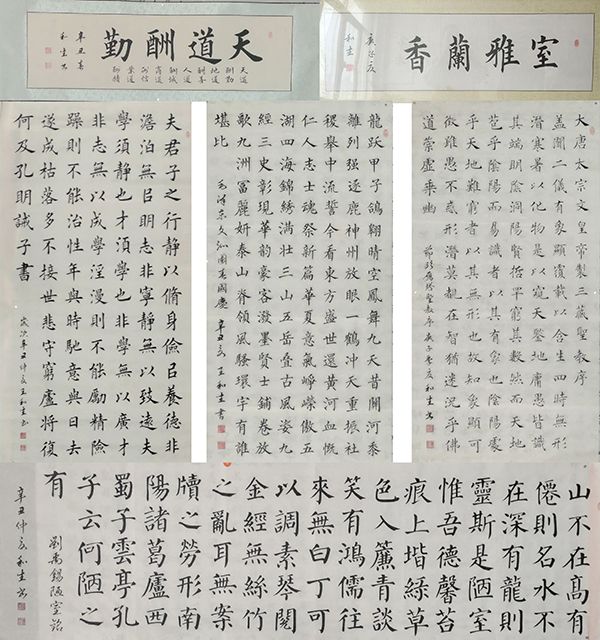 天道酬勤
天道
酬勤
地道
酬善
人道
酬誠
商道
酬信
業道
酬精
辛丑春
和生書
室雅蘭香
庚子夏
和生
夫君子之行静以脩身儉㠯養德非
澹泊無㠯明志非寧静無以致遠夫
學須静也才須學也非學無以廣才
非志無以成學淫漫則不能勵精險
躁則不能治性年與時馳意與日去
遂成枯落多不接世悲守窮廬將復
何及孔明誡子書
歲次辛丑仲夏王和生書
龍跃甲子鴿翔晴空鳳舞九天昔關河黍
離列强逐鹿神州放眼一鶴冲天重振社
稷舉中流誓今看東方盛世還黄河血慨
仁人志士魂祭新篇華夏意氣崢嶸傲五
湖四海錦綉满壮三山五岳叠古風姿九
經三史彰現華韵豪客潑墨賢士鋪卷放
歌九洲富麗妍泰山脊領風騷環宇有誰
堪比
毛泽东文沁園春國慶 辛丑夏王和生書
大唐太宗文皇帝製三蔵聖教序
盖聞二儀有象顯覆載以含生四時無形
潜寒暑以化物是以窺天鑒地庸愚皆識
其端明陰洞陽賢哲罕窮其数然而天地
苞乎陰陽而易識者以其有象也陰陽處
乎天地難窮者以其無形也故知象顯可
徵雖愚不惑形潜莫覩在智猶迷况乎佛
道崇虚乗幽
節临雁塔聖教序庚子季夏和生書
山不在高有
僊則名水不
在深有龍則
靈斯是陋室
惟吾德馨苔
痕上堦緑草
色入簾青談
笑有鴻儒往
來無白丁可
以調素琴閲
金經無絲竹
之亂耳無案
牘之勞形南
陽諸葛廬西
蜀子雲亭孔
子云何陋之
有
劉禹錫陋室銘
辛丑仲夏和生書